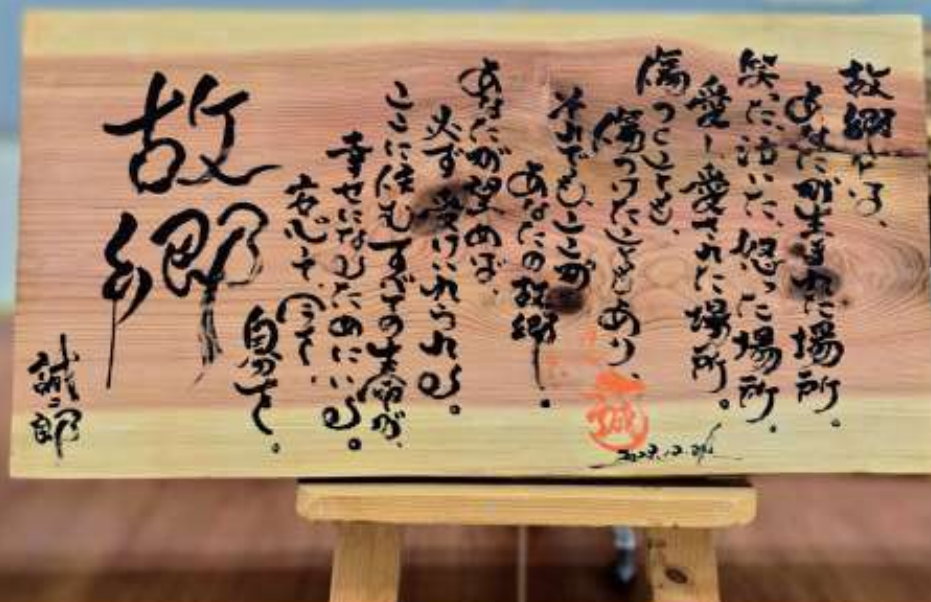 故郷とは、
あなたが生まれた場所。
笑った、泣いた、怒った場所。
愛し愛された場所。
傷つくことも、
傷つけたこともあり、
それでも、ここが
あなたの故郷。
あなたが望めば、
必ず受け入れられる。
ここに住むすべての生命が、
幸せになるためにいる。
安心して、
自分を。
故郷
誠二郎
誠